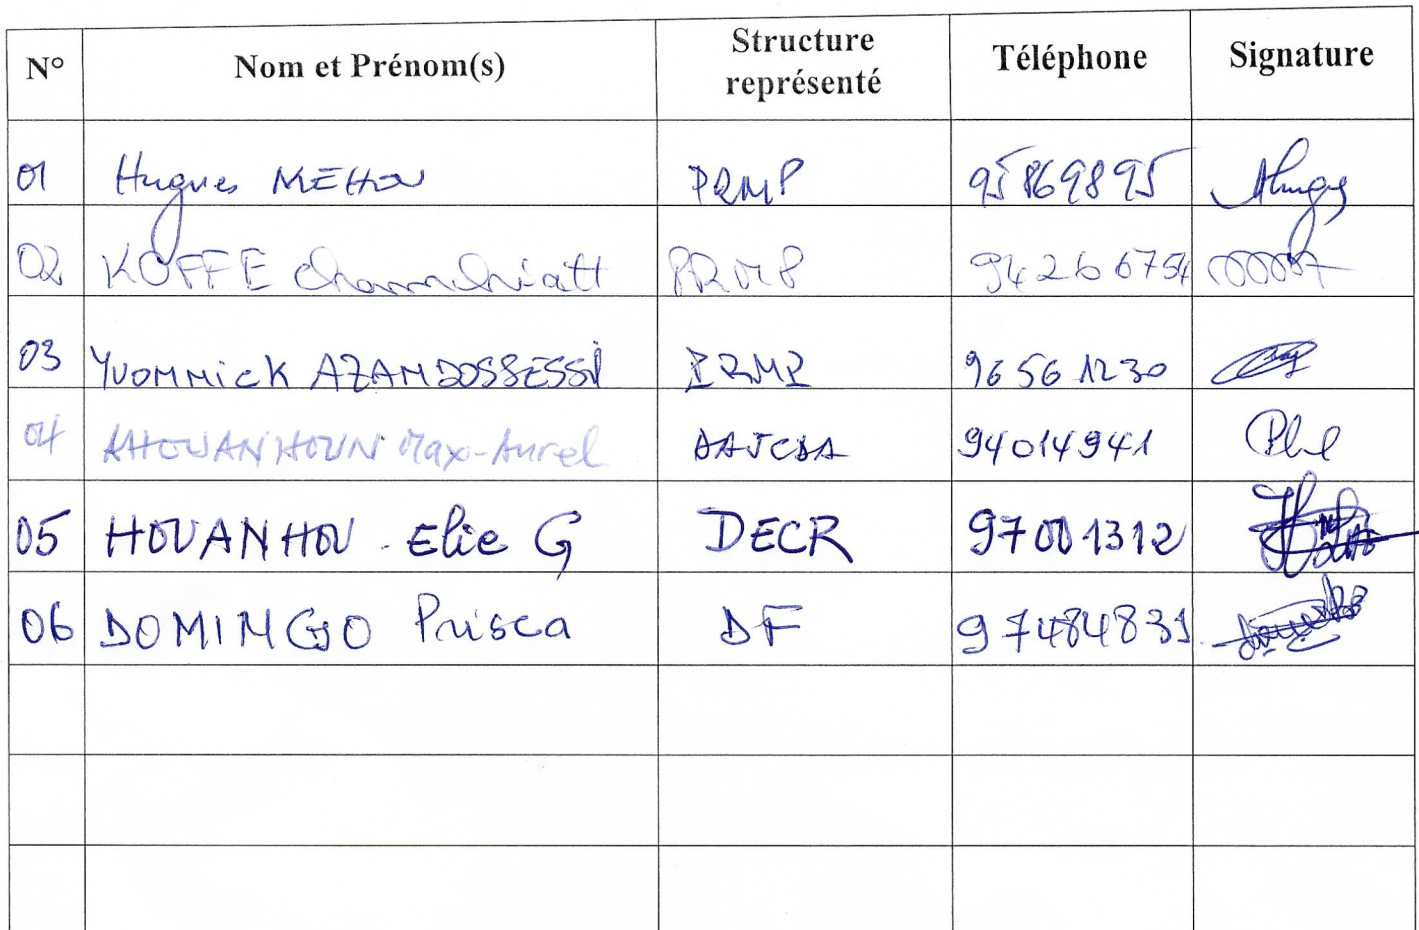 N° Nom et Prénom(s) Structure représenté Téléphone Signature
01 Hugues MEHOU PRMP 95869895
02 KOFFE PRMP 94266754
03 Yvonnick AZANDOSSESSI PRMP 96561230
04 AHOUANHOUN Max-Aurel 94014941
05 HOUANHOU Elie G DECR 97001312
06 DOMINGO Prisca DF 97484831